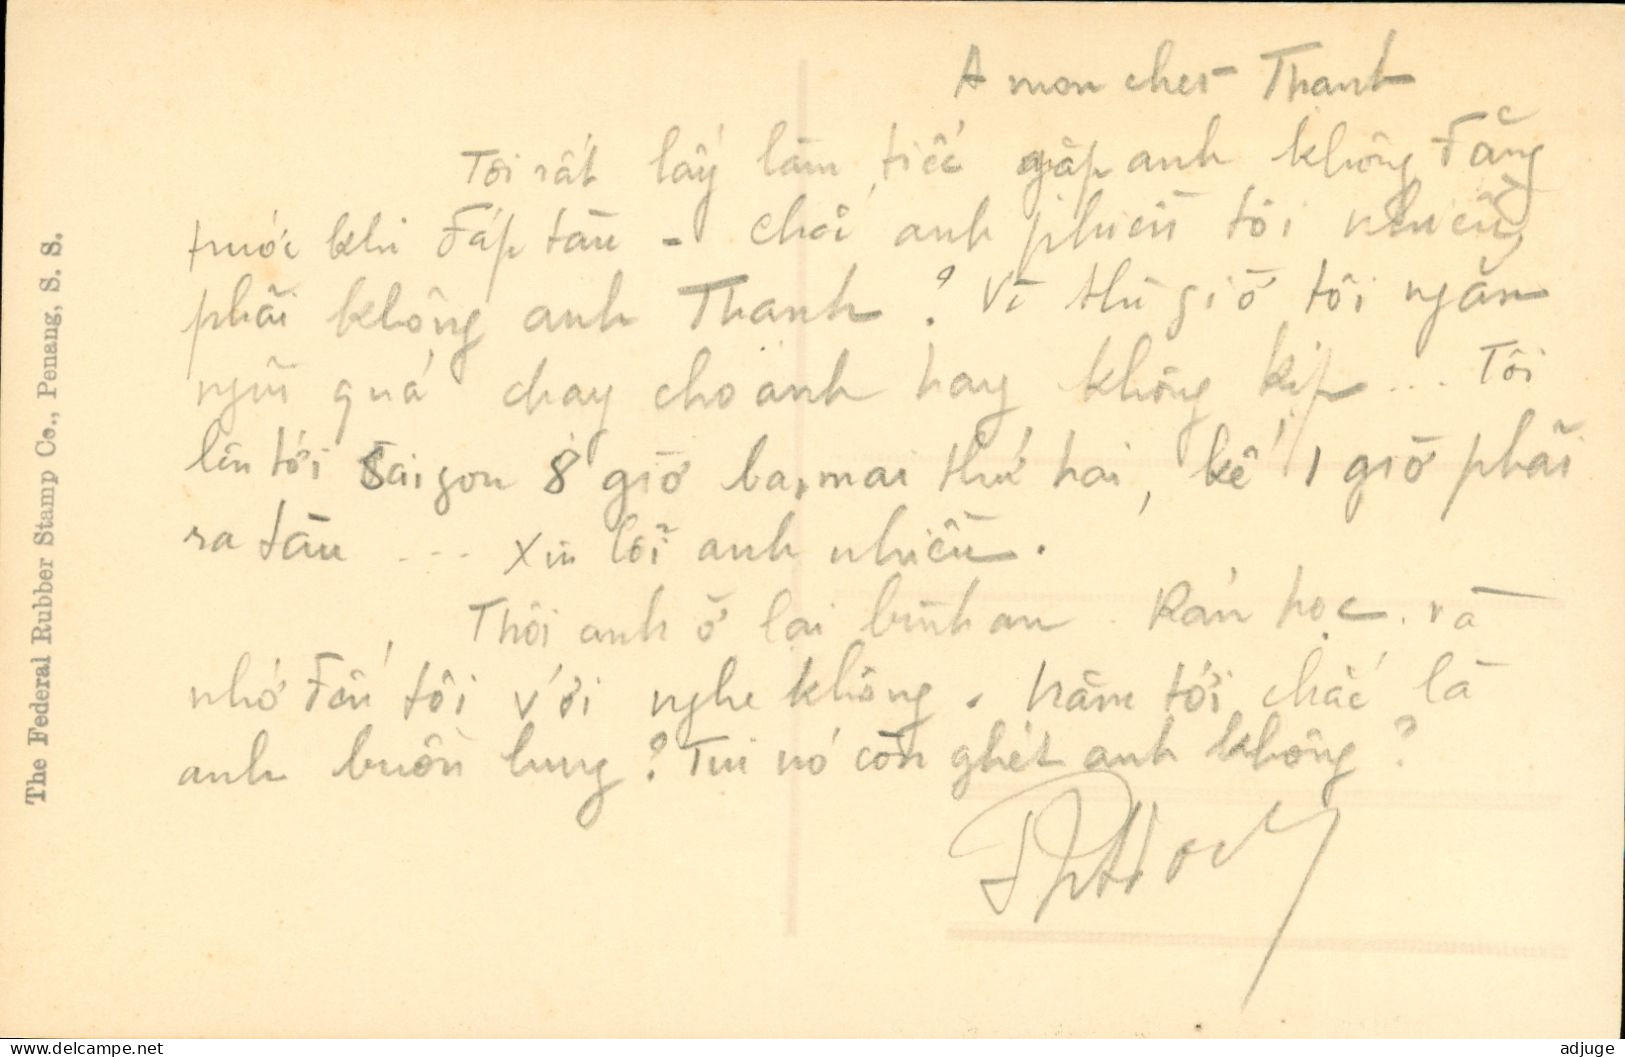 A mon cher Thanh
Tôi rất lấy làm tiếc gặp anh không đặng
trước khi đáp tàu - chắc anh phiền tôi nhiều,
phải không anh Thanh ? Vì thì giờ tôi ngắn
ngũi quá chạy cho anh hay không kịp ... Tôi
lên tới Saigon 8 giờ ban mai thứ hai, kế 1 giờ phải
ra tàu ... xin lỗi anh nhiều.
Thôi anh ở lại bình an. Rán học. và
nhớ đến tôi với nghe không. Năm tới chắc là
anh buồn lung ? Tui nó còn ghét anh không ?
The Federal Rubber Stamp Co., Penang, S. S.
delcampe.net
adjuge